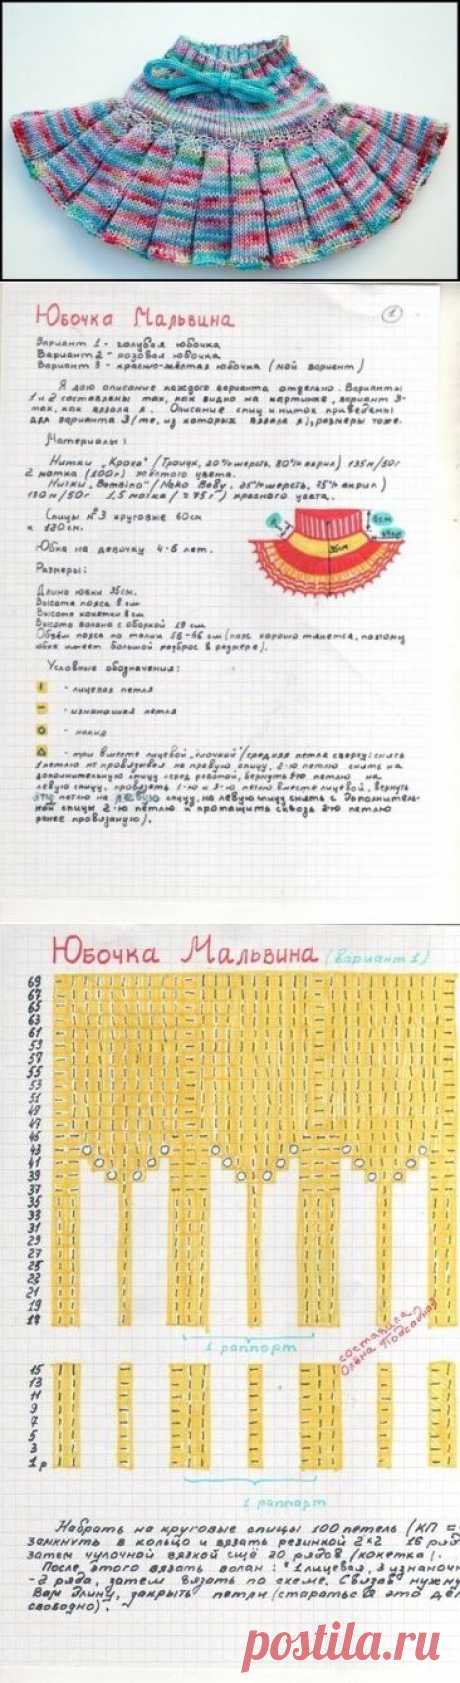 Юбочка Мальвина
1
Вариант 1 - голубая юбочка
Вариант 2 - розовая юбочка
Вариант 3 - красно-жёлтая юбочка (мой вариант)
Я даю описание каждого варианта отдельно. Варианты
1 и 2 составлены так, как видно на картинке, вариант 3-
так, как вязала я. Описание спиц и ниток приведены
для варианта 3 (те, из которых вязала я), размеры тоже.
Материалы:
Нитки „Кроха" (Троицк, 20% шерсть, 80% акрил) 135м/50г
2 мотка (100г) жёлтого цвета.
Нитки „Bambino" (Nako Baby, 25% шерсть, 75% акрил)
130м/50г 1,5 мотка (≈75г) красного цвета.
Спицы №3 круговые 60см
и 120см.
Юбка на девочку 4-6 лет.
Размеры:
8см
35см
Длина юбки 35см.
Высота пояса 8см
Высота кокетки 8см
Высота волана с оборкой 19см
Объём пояса по талии 56-66 см (пояс хорошо тянется, поэтому
юбка имеет большой разброс в размере).
Условные обозначения:
- лицевая петля
- изнаночная петля
- накид
- три вместе лицевой „ёлочкой" (средняя петля сверху: снять
1 петлю не провязывая на правую спицу, 2-ю петлю снять на
дополнительную спицу перед работой, вернуть эту петлю на
левую спицу, провязать 1-ю и 3-ю петлю вместе лицевой, вернуть
эту петлю на левую спицу, на левую спицу снять с дополнитель-
ной спицы 2-ю петлю и протащить сквозь 2-ю петлю
ранее провязаную).
Юбочка Мальвина (вариант 1)
69
67
65
63
61
59
57
55
53
51
49
47
45
43
41
39
37
35
33
31
29
27
25
21
19
1 раппорт
составила
Олёна
15
13
11
9
7
5
3
1 р
1 раппорт
Набрать на круговые спицы 100 петель (КП =
замкнуть в кольцо и вязать резинкой 2×2 16 ряд
затем чулочной вязкой ещё 20 рядов (кокетка).
После этого вязать волан: *1 лицевая, 3 изнаноч
-2 ряда, затем вязать по схеме. Связав нужну
Вам длину, закрыть петли (старатьс это де
свободно).
postila.ru